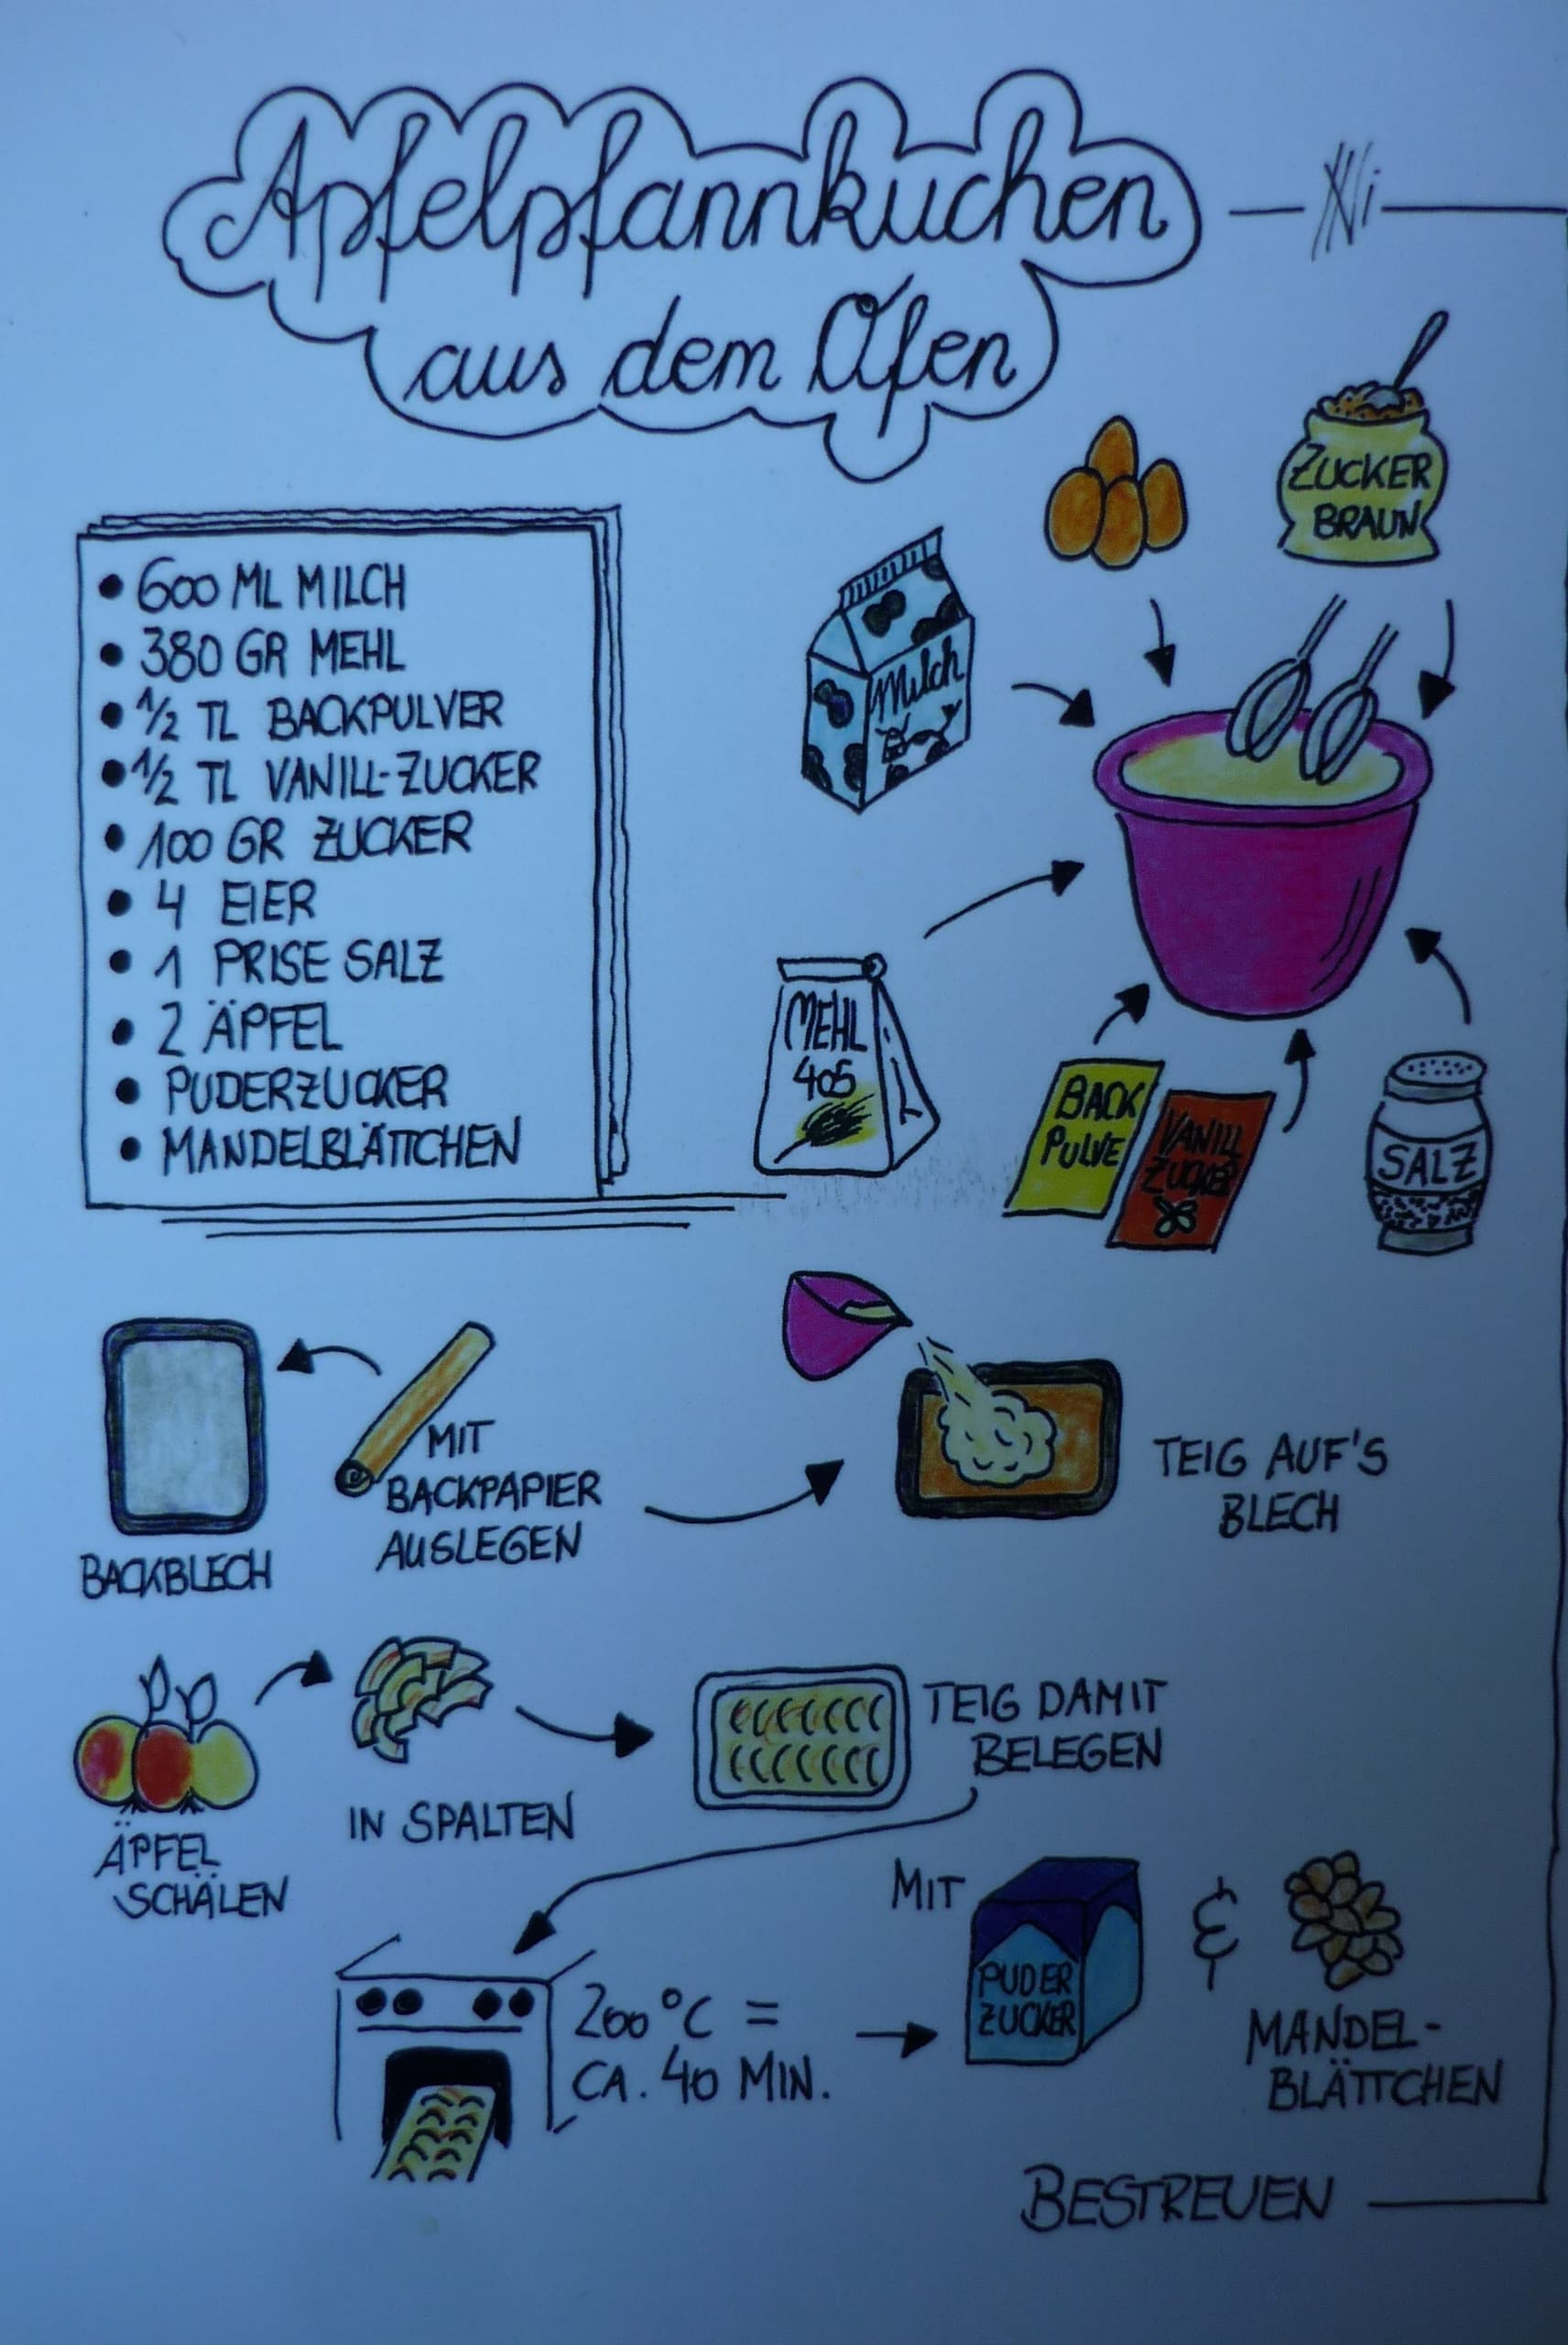 Apfelpfannkuchen
aus dem Ofen
ZUCKER
BRAUN
• 600 ML MILCH
• 380 GR MEHL
• 1/2 TL BACKPULVER
• 1/2 TL VANILL-ZUCKER
• 100 GR ZUCKER
• 4 EIER
• 1 PRISE SALZ
• 2 ÄPFEL
• PUDERZUCKER
• MANDELBLÄTTCHEN
Milch
MEHL
405
BACK
PULVE
VANILL
ZUCKER
SALZ
BACKBLECH
MIT
BACKPAPIER
AUSLEGEN
TEIG AUF'S
BLECH
ÄPFEL
SCHÄLEN
IN SPALTEN
TEIG DAMIT
BELEGEN
200°C =
CA. 40 MIN.
MIT
PUDER
ZUCKER
&
MANDEL-
BLÄTTCHEN
BESTREUEN